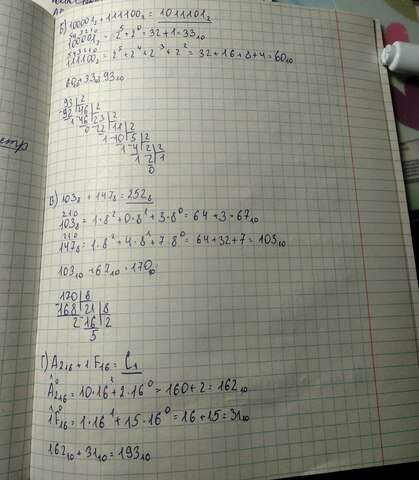 Б) 100001₂ + 111100₂ = 1011101₂
5 4 3 2 1 0
100001₂ = 2⁵ + 2⁰ = 32 + 1 = 33₁₀
5 4 3 2 1 0
111100₂ = 2⁵ + 2⁴ + 2³ + 2² = 32 + 16 + 8 + 4 = 60₁₀
93 | 2
92 46 | 2
1 46 23 | 2
0 22 11 | 2
1 10 5 | 2
1 4 2 | 2
1 2 1
0
В) 103₈ + 147₈ = 252₈
2 1 0
103₈ = 1·8² + 0·8¹ + 3·8⁰ = 64 + 3 = 67₁₀
2 1 0
147₈ = 1·8² + 4·8¹ + 7·8⁰ = 64 + 32 + 7 = 103₁₀
103₁₀ + 67₁₀ = 170₁₀
170 | 8
168 21 | 8
2 16 2
5
Г) A2₁₆ + 1F₁₆ = C1
1 0
A2₁₆ = 10·16¹ + 2·16⁰ = 160 + 2 = 162₁₀
1 0
1F₁₆ = 1·16¹ + 15·16⁰ = 16 + 15 = 31₁₀
162₁₀ + 31₁₀ = 193₁₀